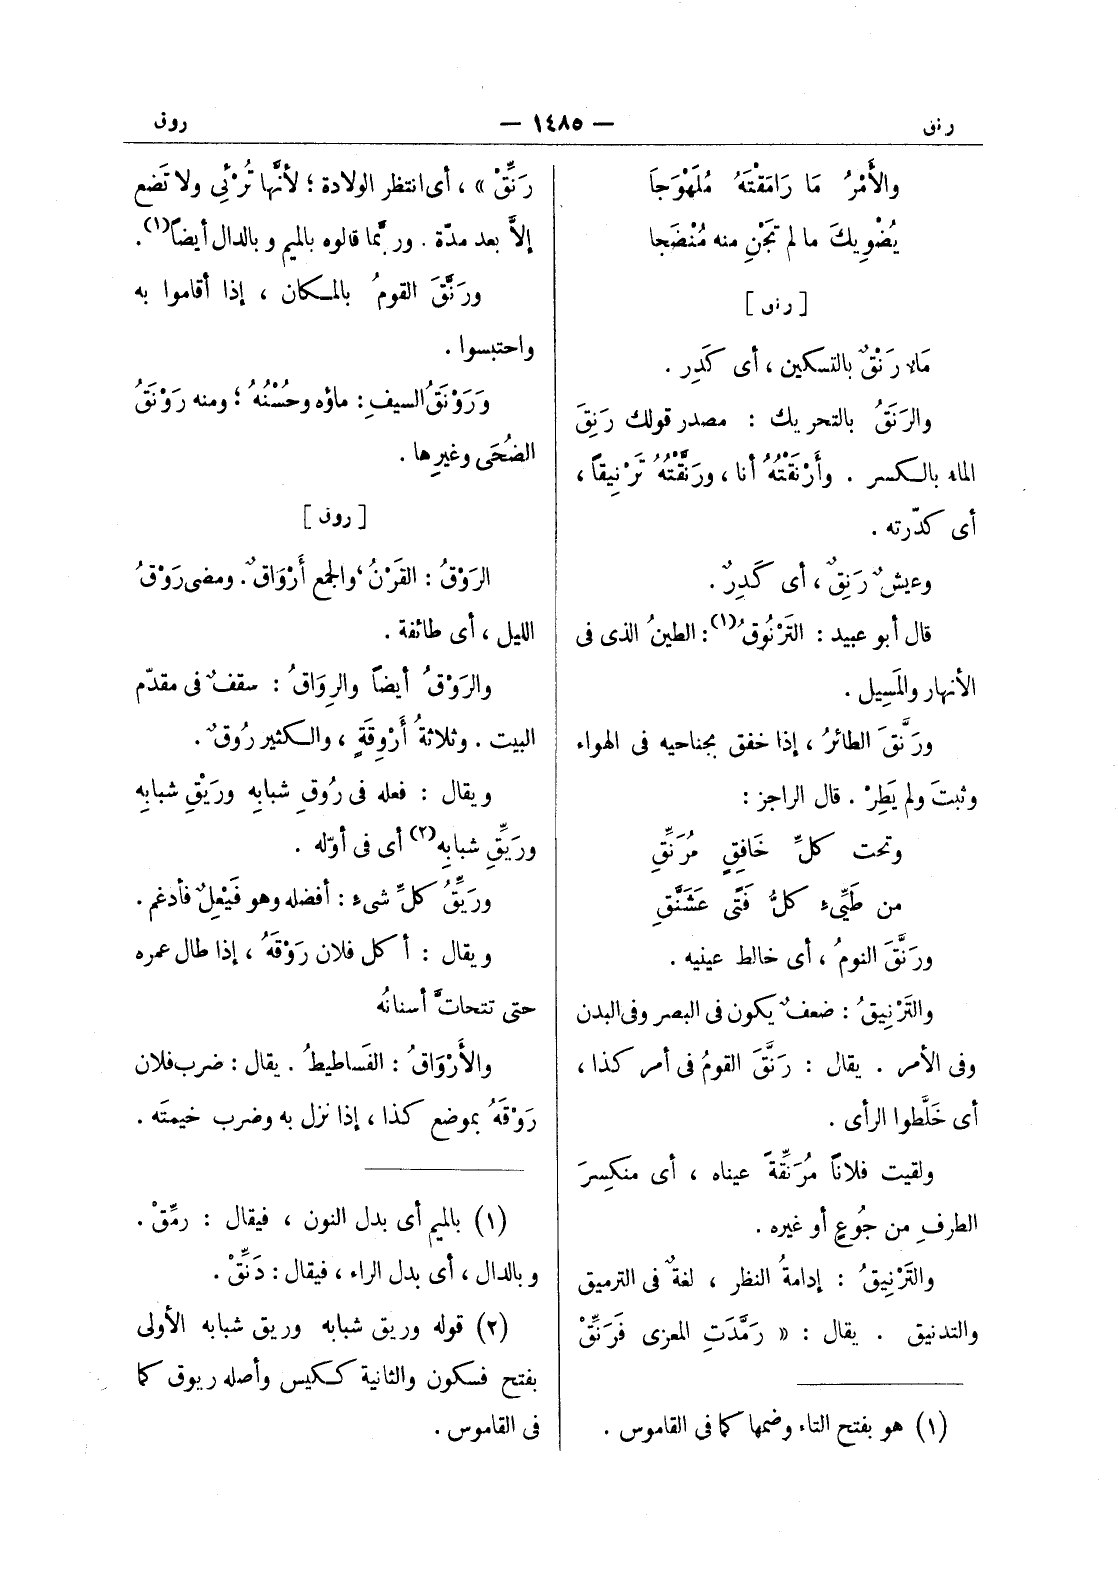 رنق
— ١٤٨٥ —
روق
والأَمْرُ مَا رَامَقْتَهُ مُلَهْوَجَا
يُضْوِيكَ ما لم تَجْنِ منه مُنْضَجا
[ رنق ]
مَاءٌ رَنْقٌ بالتسكين ، أى كَدِر .
والرَنَقُ بالتحريك : مصدر قولك رَنِقَ
الماء بالكسر . وأَرْنَقْتُهُ أنا ، ورَنَّقْتُهُ تَرْنِيقاً ،
أى كدّرته .
وعيشٌ رَنِقٌ ، أى كَدِرٌ .
قال أبو عبيد : التَرْنُوقُ(١) : الطينُ الذى فى
الأنهار والمَسِيل .
ورَنَّقَ الطائرُ ، إذا خفق بجناحيه فى الهواء
وثبتَ ولم يَطِرْ . قال الراجز :
وتحت كلِّ خَافِقٍ مُرَنِّقِ
من طَيِّىءٍ كلُّ فَتًى عَشَنَّقِ
ورَنَّقَ النومُ ، أى خالط عينيه .
والتَرْنِيقُ : ضعفٌ يكون فى البصر وفى البدن
وفى الأمر . يقال : رَنَّقَ القومُ فى أمر كذا ،
أى خَلَّطوا الرأى .
ولقيت فلاناً مُرَنِّقَةً عيناه ، أى منكسِرَ
الطرفِ من جُوعٍ أو غيره .
والتَرْنِيقُ : إدامةُ النظر ، لغةٌ فى الترميق
والتدنيق . يقال : « رَمَّدَتِ المعزى فَرَنِّقْ
(١) هو بفتح التاء وضمها كما فى القاموس .
رَنِّقْ » ، أى انتظر الولادة ؛ لأنَّها تُرْئِى ولا تَضع
إلاَّ بعد مدّة . وربَّما قالوه بالميم وبالدال أيضاً(١).
ورَنَّقَ القومُ بالمكان ، إذا أقاموا به
واحتبسوا .
وَرَوْنَقُ السيفِ : ماؤه وحُسْنُهُ ؛ ومنه رَوْنَقُ
الضُحَى وغيرِها .
[ روق ]
الرَوْقُ : القَرْنُ ، والجمع أَرْوَاقٌ . ومضى رَوْقُ
الليل ، أى طائفة .
والرَوْقُ أيضاً والرِوَاقُ : سقفٌ فى مقدّم
البيت . وثلاثةُ أَرْوِقَةٍ ، والكثير رُوقٌ .
ويقال : فعله فى رُوقِ شبابِه ورَيْقِ شبابِه
ورَيِّقِ شبابِه(٢) أى فى أوّله .
ورَيِّقُ كلِّ شىء : أفضله وهو فَيْعِلٌ فأدغم .
ويقال : أكل فلان رَوْقَهُ ، إذا طال عمره
حتى تتحاتَّ أسنانُه
والأَرْوَاقُ : الفَساطيطُ . يقال : ضرب فلان
رَوْقَهُ بموضع كذا ، إذا نزل به وضرب خيمتَه .
(١) بالميم أى بدل النون ، فيقال : رمِّقْ .
وبالدال ، أى بدل الراء ، فيقال : دَنِّقْ .
(٢) قوله وريق شبابه وريق شبابه الأولى
بفتح فسكون والثانية ككيس وأصله ريوق كما
فى القاموس .